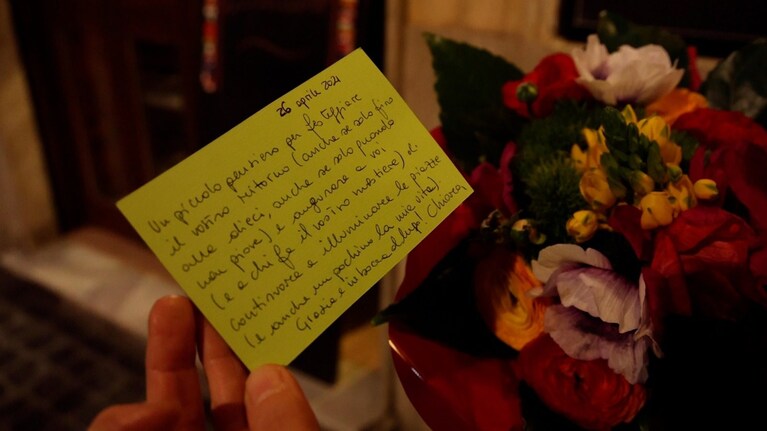 26 aprile 2021
Un piccolo pensiero per festeggiare
il vostro ritorno (anche se solo fino
alle dieci, anche se solo quando
non piove) e augurare a voi
(e a chi fa il vostro mestiere) di
continuare a illuminare le piazze
(e anche un pochino la mia vita)
Grazie e in bocca al lupo! Chiara